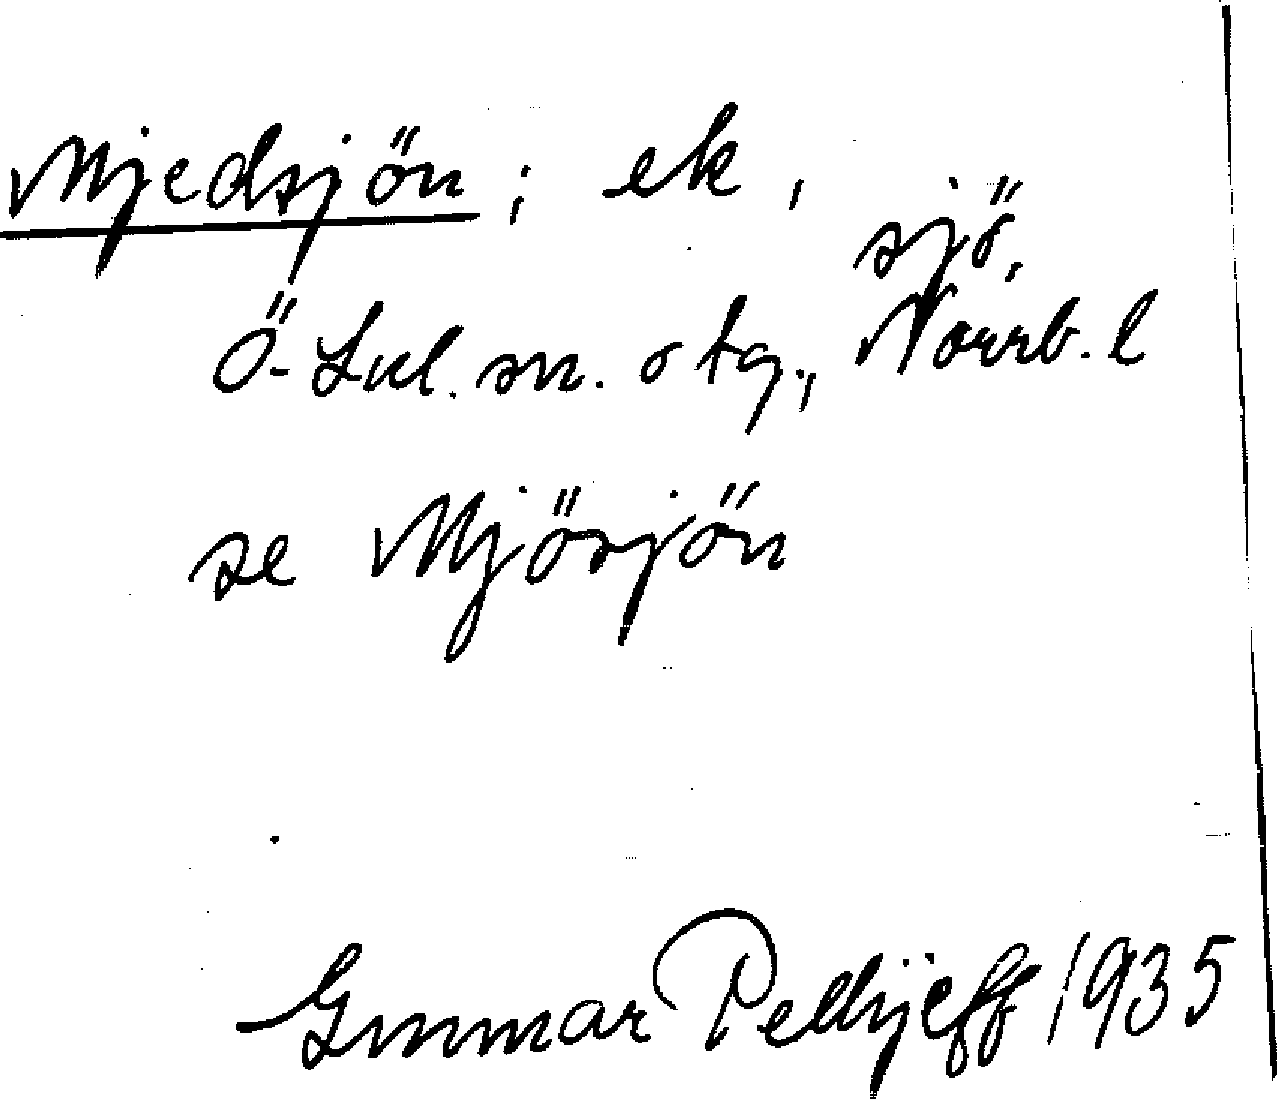 Mjedsjön; ek, sjö,
Ö-Lul. sn. o tg., Norrb. l
se Mjösjön
Gunnar Pellijeff 1935